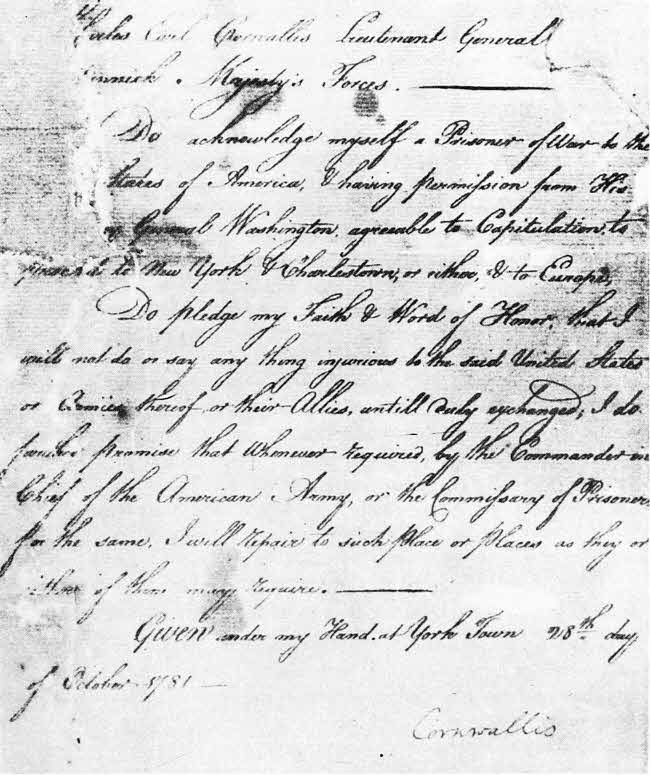 Charles Earl Cornwallis Lieutenant General
Majesty's Forces.
Do acknowledge myself a Prisoner of War to the
States of America, & having permission from His
General Washington, agreeable to Capitulation, to
proceed to New York & Charlestown, or either, & to Europe,
Do pledge my Faith & Word of Honor, that I
will not do or say any thing injurious to the said United States
or Armies thereof, or their Allies, untill duly exchanged; I do
further promise that Whenever required, by the Commander in
Chief of the American Army, or the Commissary of Prisoners
for the same, I will repair to such place or places as they or
either of them may require.
Given under my Hand at York Town 28th day
of October 1781
Cornwallis